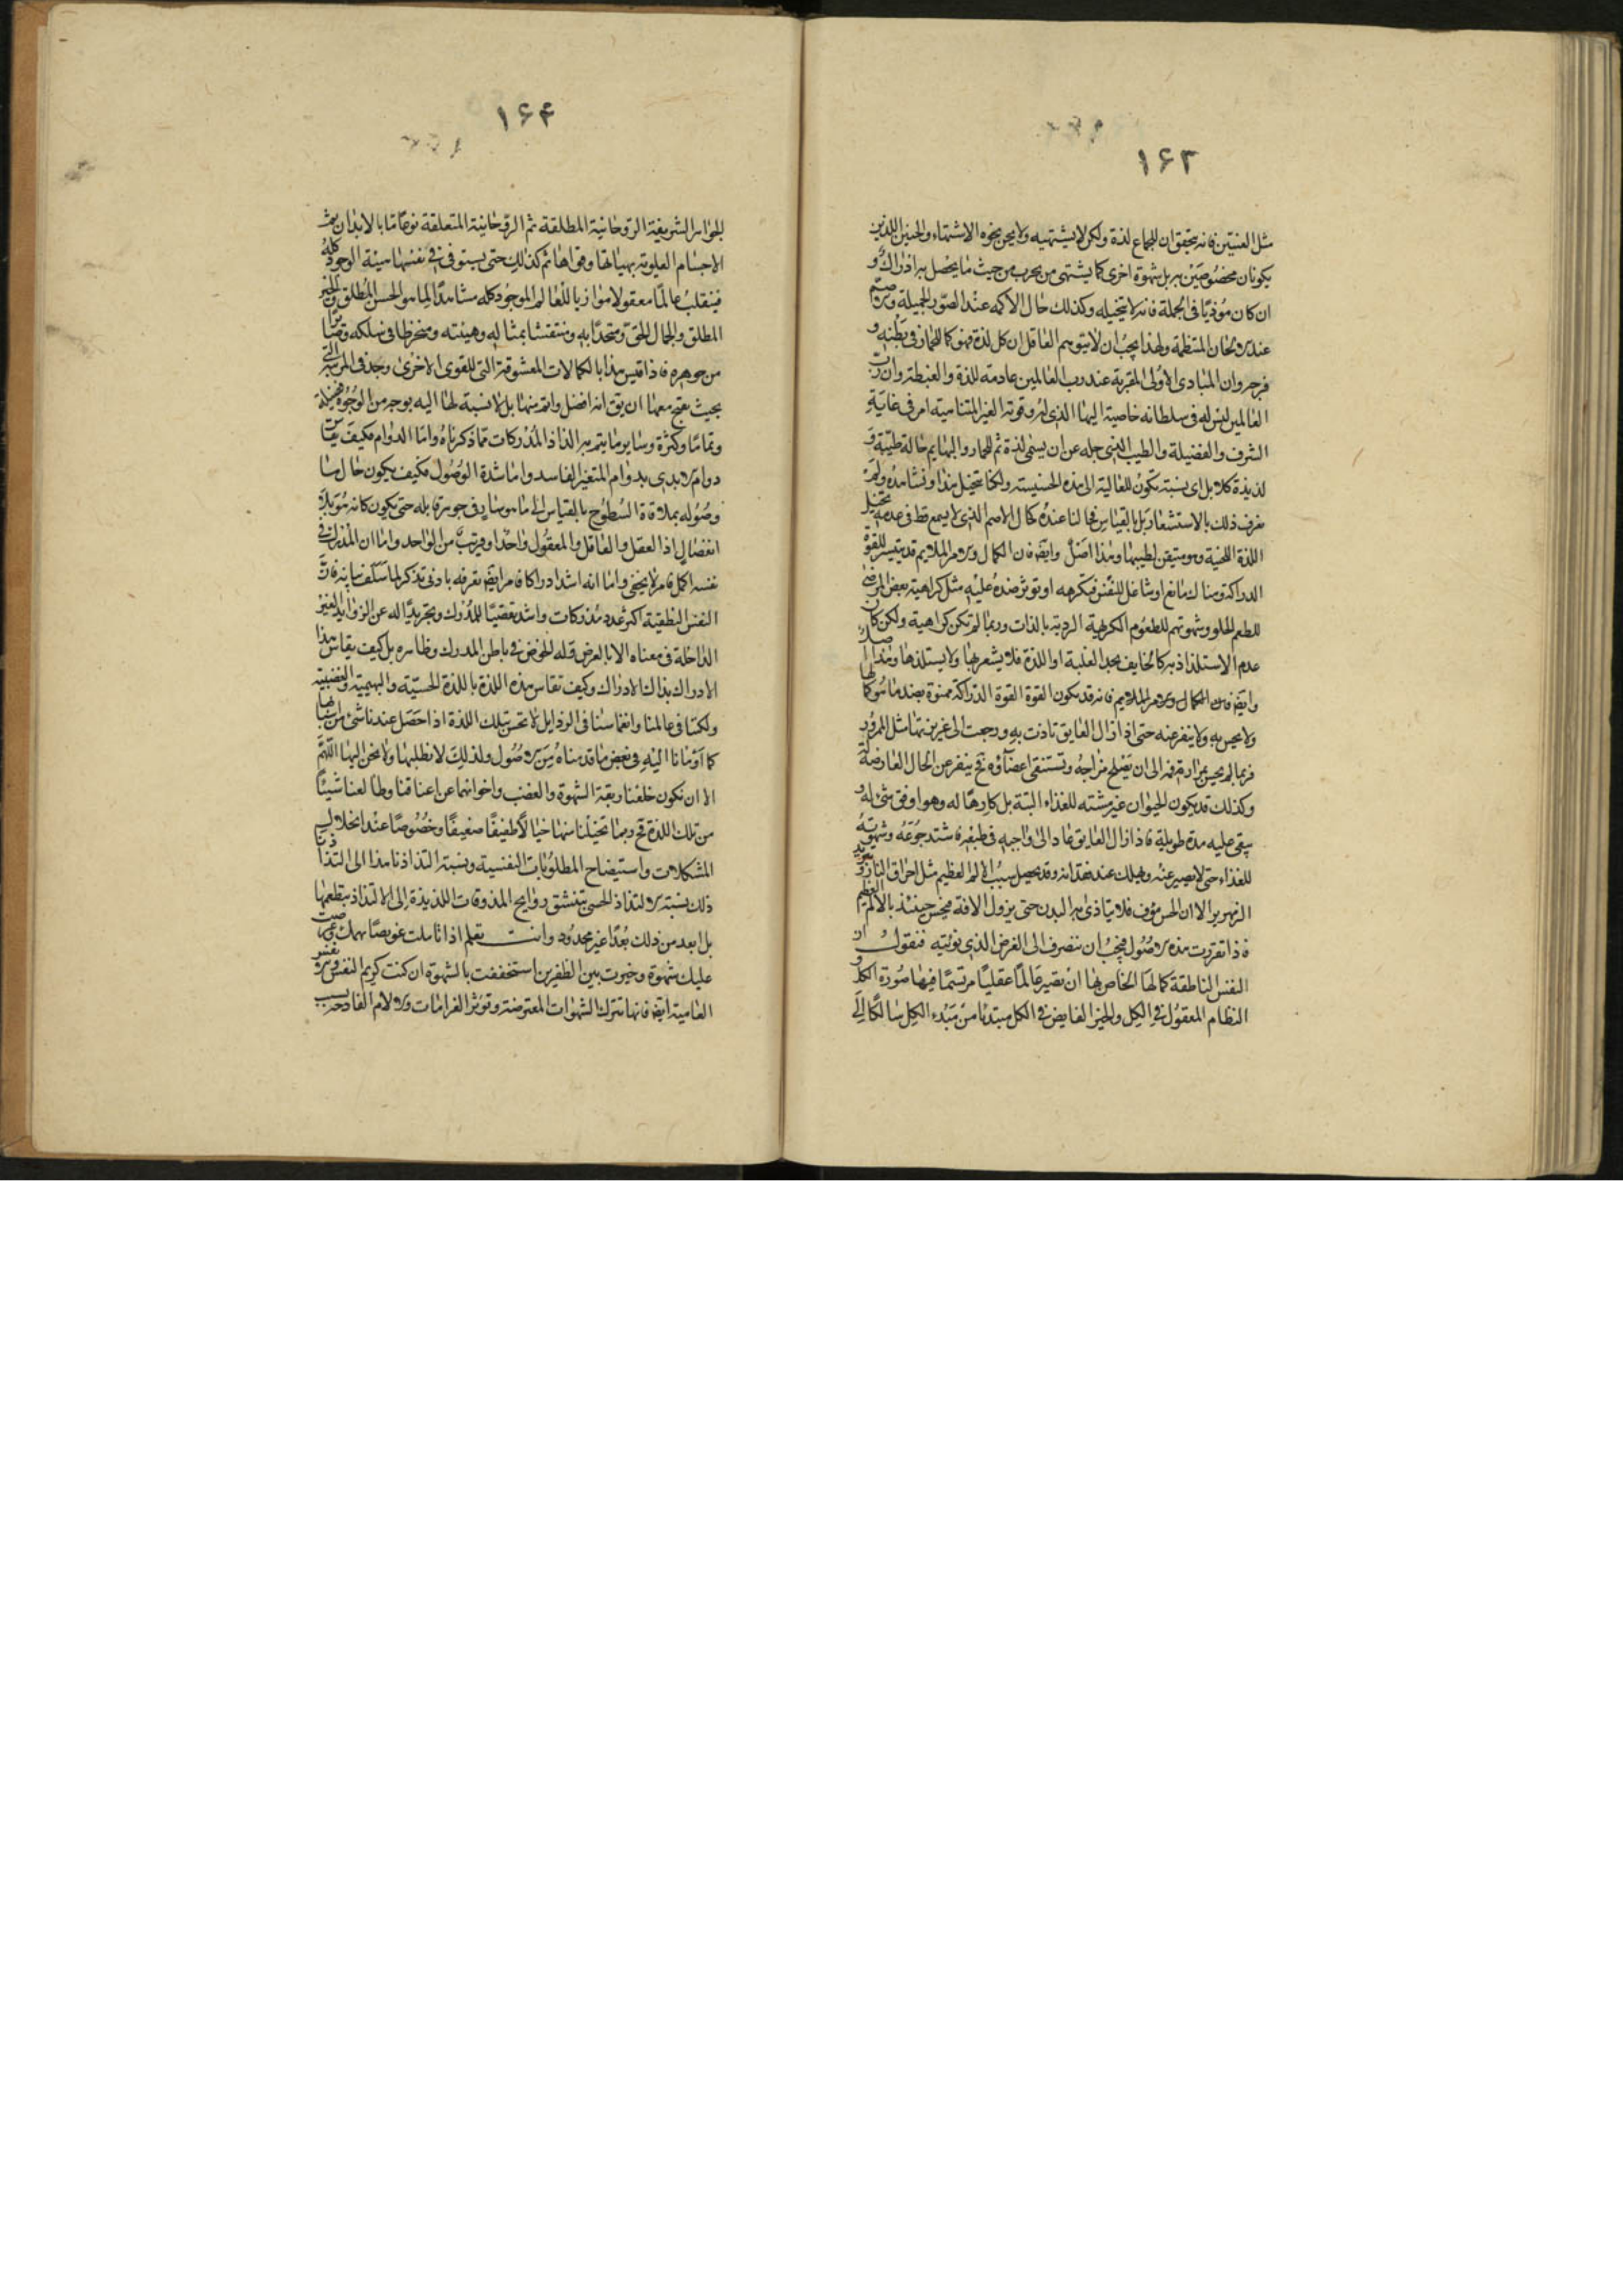 ١۶٣
مثل العنين فانه يتحقق ان للجماع لذة ولكن لا يشتهيه ولا يحن نحوه الاشتهاء والحنين اللذين
يكونان مخصوصين به بل شهوة اخرى كما يشتهى من يجرب من حيث ما يحصل به ادراك و
ان كان موذيا فى الجملة فانه لا يتخيله وكذلك حال الاكمه عند الصور الجميلة والاصم
عند الالحان المنتظمة ولهذا يجب ان لا يتوهم العاقل ان كل لذة فهو كما للحمار فى بطنه و
فرجه وان المبادى الاولى المقربة عند رب العالمين عادمة للذة والغبطة وان رب
العالمين ليس له فى سلطانه خاصية البهاء الذى له وقوته الغير المتناهية امر فى غاية
الشرف والفضيلة والطيب الذى نجله عن ان يسمى لذة ثم للحمار والبهايم حالة طيبة و
لذيذة كلا بل اى نسبة تكون للعالية الى هذه الخسيسة ولكنا نتخيل هذا ونشاهده ولم
نعرف ذلك بالاستشعار بل بالقياس فحالنا عنده كحال الاصم الذى لا يسمع قط فى عدمه تخيل
اللذة اللحنية وهو متيقن لطيبها وهذا اصل وايضا فان الكمال والامر الملايم قد يتيسر للقوة
الدراكة وهناك مانع او شاغل للنفس فتكرهه او توثر ضده عليه مثل كراهية بعض المرضى
للطعم الحلو وشهوتهم للطعوم الكريهة الردية بالذات وربما لم تكن كراهية ولكن كان
عدم الاستلذاذ به كالخايف يجد الغلبة او اللذة فلا يشعر بها ولا يستلذها وهذا اصل
وايضا فان الكمال والامر الملايم فانه قد يكون القوة القوة الدراكة ممنوة بضد ما هو كمالها
ولا يحس به ولا ينفر عنه حتى اذا زال العايق تاذت به ورجعت الى غريزتها مثل الممرور
فربما لم يحس بمرارة فمه الى ان يصلح مزاجه وتستنقى اعضاؤه فح ينفر عن الحال العارضة له
وكذلك قد يكون الحيوان غير مشته للغذاء البتة بل كارها له وهو اوفق شئ له و
يبقى عليه مدة طويلة فاذا زال العايق عاد الى واجبه فى طبعه فاشتد جوعه وشهوته
للغذاء حتى لا يصبر عنه ويهلك عند فقدانه وقد يحصل سبب الالم العظيم مثل احراق النار وتبريد
الزمهرير الا ان الحس مؤف فلا يتاذى به البدن حتى يزول الافة فيحس حينئذ بالالم العظيم
فاذا تقررت هذه الاصول فيجب ان ننصرف الى الغرض الذى نؤمه فنقول ان
النفس الناطقة كمالها الخاص بها ان تصير عالما عقليا مرتسما فيها صورة الكل و
النظام المعقول فى الكل والخير الفايض فى الكل مبتدئا من مبدء الكل سالكا الى
١۶۴
الجواهر الشريفة الروحانية المطلقة ثم الروحانية المتعلقة نوعا ما بالابدان ثم
الاجسام العلوية بهيئاتها وقواها ثم كذلك حتى يستوفى فى نفسها هيئة الوجود كله
فينقلب عالما معقولا موازيا للعالم الموجود كله مشاهدا لما هو الحسن المطلق والخير
المطلق والجمال الحق ومتحدا به ومنتقشا بمثاله وهيئته ومنخرطا فى سلكه وصايرا
من جوهره فاذا قيس هذا بالكمالات المعشوقة التى للقوى الاخرى وجد فى المرتبة التى
بحيث يقبح معها ان يق انه افضل واتم منها بل لا نسبة لها اليه بوجه من الوجوه فضيلة
وتماما وكثرة وساير ما يتم به الذاذ المدركات مما ذكرناه واما الدوام فكيف يقاس
دوام الابدى بدوام المتغير الفاسد واما شدة الوصول فكيف يكون حال ما
وصوله بملاقاة السطوح بالقياس الى ما هو سار فى جوهر قابله حتى يكون كانه هو بلا
انفصال اذا العقل والعاقل والمعقول واحد او قريب من الواحد واما ان المدرك فى
نفسه اكمل فامر لا يخفى واما انه اشد ادراكا فامر ايضا تعرفه بادنى تذكر لما سلف بيانه فان
النفس النطقية اكثر عدد مدركات واشد تقصيا للمدرك وتجريدا له عن الزوايد الغير
الداخلة فى معناه الا بالعرض وله الخوض فى باطن المدرك وظاهره بل كيف يقاس هذا
الادراك بذاك الادراك وكيف تقاس هذه اللذة باللذة الحسية والبهيمية والغضبية
ولكنا فى عالمنا وانغماسنا فى الرذايل لا نحس بتلك اللذة اذا حصل عندنا شئ من اسبابها
كما اومانا اليه فى بعض ما قدمناه من الاصول ولذلك لا نطلبها ولا نحن اليها اللهم
الا ان نكون خلعنا ربقة الشهوة والغضب واخواتهما عن اعناقنا وطالعنا شيئا
من تلك اللذة فح ربما تخيلنا منها خيالا طفيفا ضعيفا وخصوصا عند انحلال
المشكلات واستيضاح المطلوبات النفسية ونسبة التذاذنا هذا الى التذاذنا
ذلك نسبة الالتذاذ الحسى بتنشق روايح المذوقات اللذيذة الى الالتذاذ بتطعمها
بل ابعد من ذلك بعدا غير محدود وانت تعلم اذا تاملت عويصا يهمك وعرضت
عليك شهوة وخيرت بين الظفرين استخففت بالشهوة ان كنت كريم النفس والانفس
العامية ايضا فانها تترك الشهوات المعترضة وتوثر الغرامات والالام الفادحة بسبب